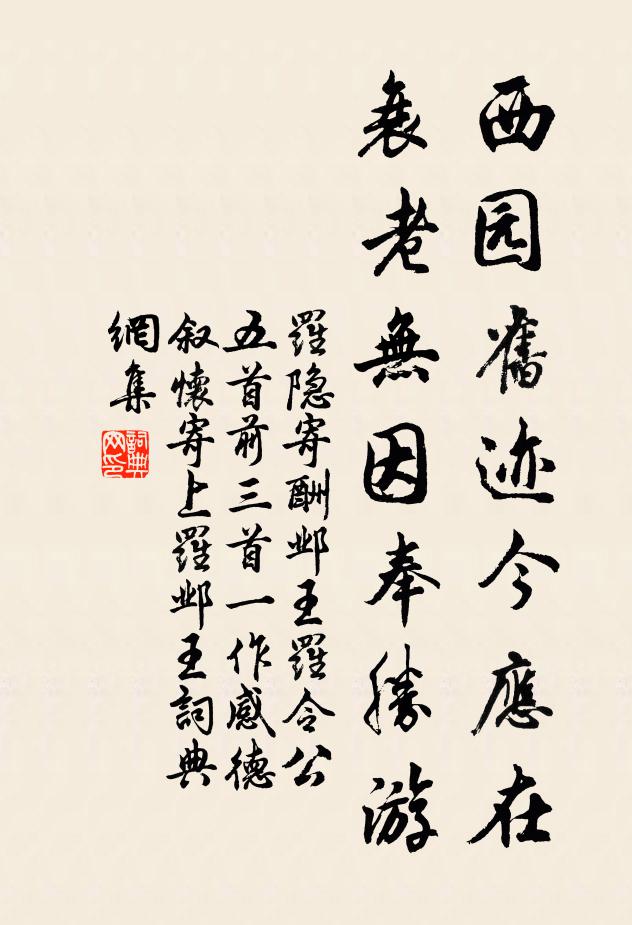 西园舊迹今應在
衰老無因奉勝游
羅隐寄酬邺王羅令公
五首前三首一作感德
叙懷寄上羅邺王詞典
網集
詞典
网印